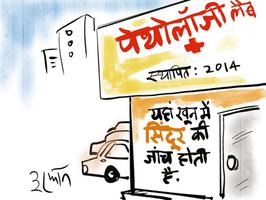 पेथोलॉजी लैब
स्थापित: 2014
यहां खून में
सिंदूर की
जांच होती
है.